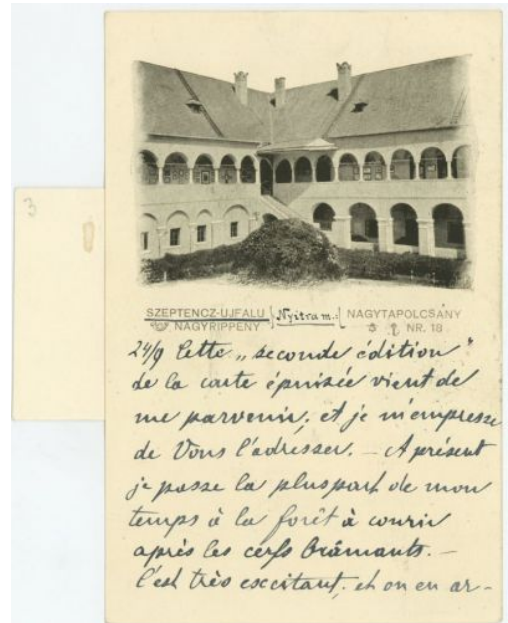 3
SZEPTENCZ-UJFALU
NAGYRIPPENY
(Nyitra m.:)
NAGYTAPOLCSÁNY
NR. 18
24/9 Cette „seconde édition"
de la carte épuisée vient de
me parvenir, et je m'empresse
de Vous l'adresser. – A présent
je passe la pluspart de mon
temps à la forêt à courir
après les cerfs brâmants. –
C'est très excitant, et on en ar-